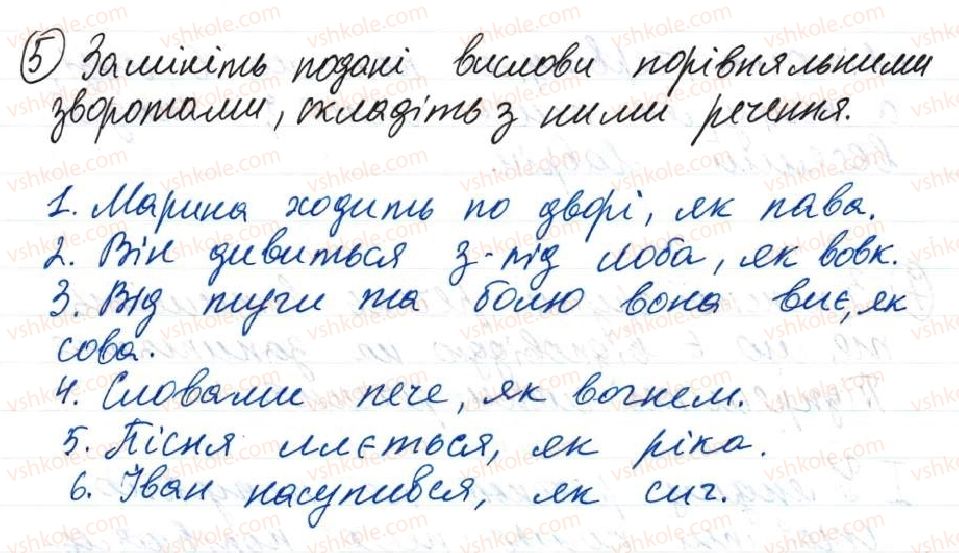 5 Замініть подані вислови порівняльними
зворотами, складіть з ними речення.
1. Марина ходить по дворі, як пава.
2. Він дивиться з-під лоба, як вовк.
3. Від туги та болю вона виє, як
сова.
4. Словами пече, як вогнем.
5. Пісня ллється, як ріка.
6. Іван насупився, як сич.